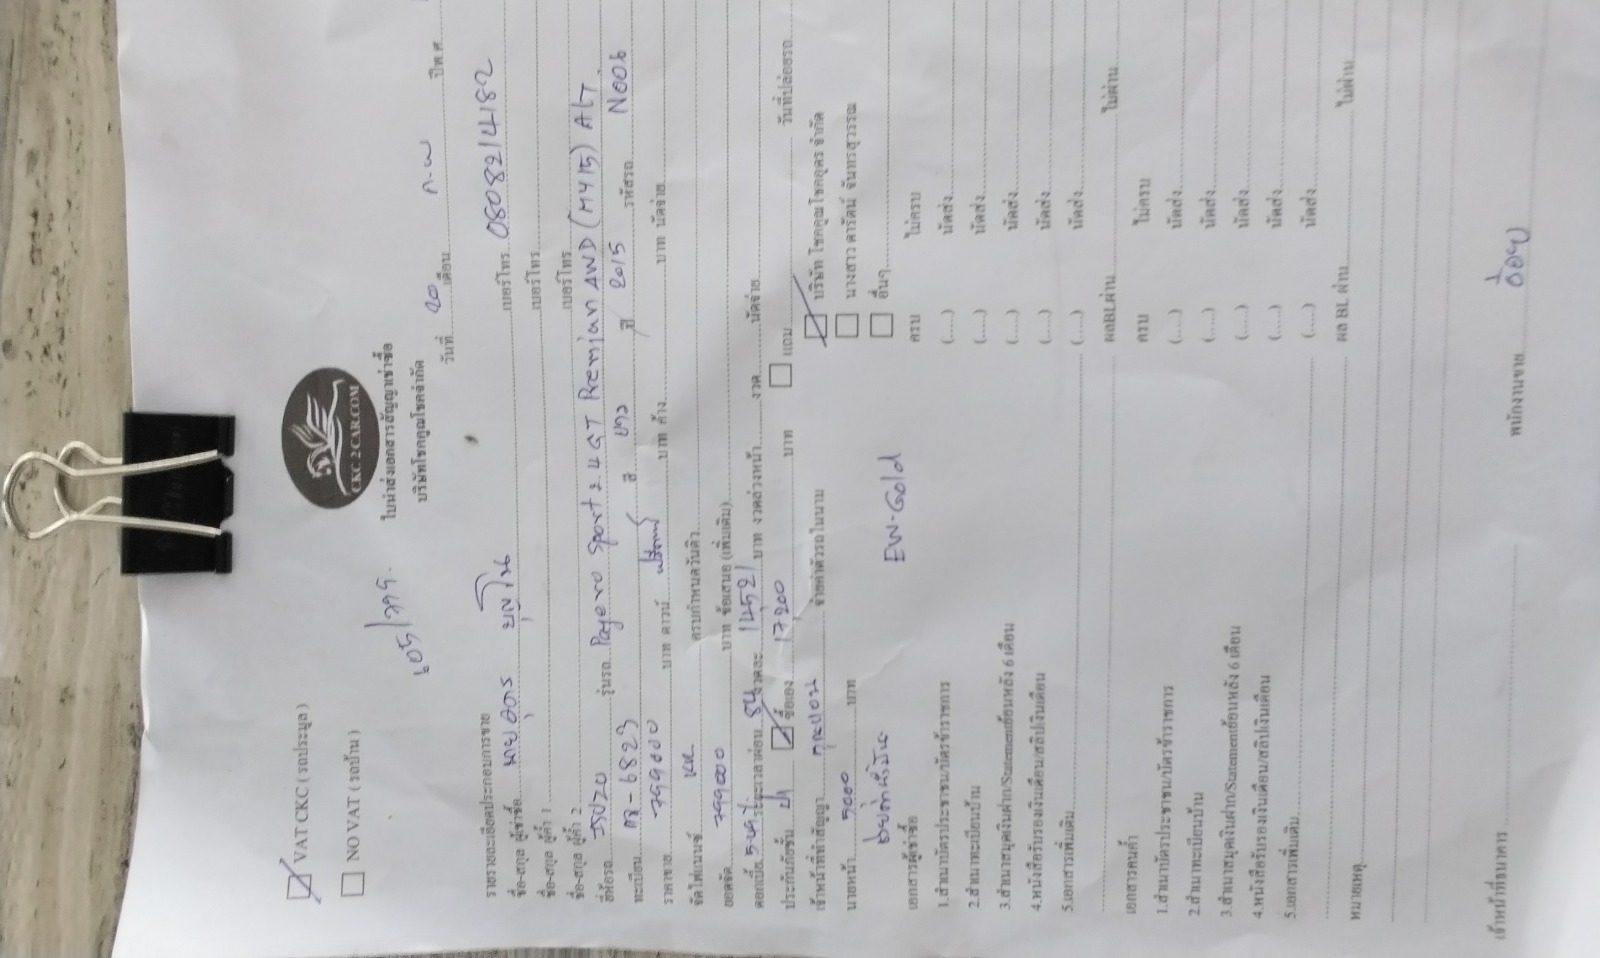 CKC 2 CAR.COM
ใบนำส่งเอกสารสัญญาเช่าซื้อ
บริษัทโชคคูณโชคจำกัด
VAT CKC ( รถประมูล )
NO VAT ( รถบ้าน )
วันที่ 20 เดือน ก.พ ปีพ.ศ
รายรายละเอียดประกอบการขาย
ชื่อ-สกุล ผู้เช่าซื้อ นาย เบอร์โทร 0808214182
ชื่อ-สกุล ผู้ค้ำ 1 เบอร์โทร
ชื่อ-สกุล ผู้ค้ำ 2 เบอร์โทร
ยี่ห้อรถ รุ่นรถ Pajero Sport 2.4 GT Premium AWD (MY15) A/T
ทะเบียน -6823 สี ขาว ปี 2015 รหัสรถ N006
ราคาขาย 799000 บาท ดาวน์ บาท ค้าง บาท นัดจ่าย
จัดไฟแนนซ์ KK ครบกำหนดวันคิว
ยอดจัด 799000 บาท ข้อเสนอ (เพิ่มเติม)
ดอกเบี้ย ระยะเวลาผ่อน 84 งวดละ 14521 บาท งวดล่วงหน้า งวด นัดจ่าย
ประกันภัยชั้น ซื้อเอง 17,200 บาท แถม วันที่ปล่อยรถ
เจ้าหน้าที่ทำสัญญา จ่ายค่าตัวรถในนาม บริษัท โชคคูณโชคอุดร จำกัด
นายหน้า 5000 บาท นางสาว ดารัตน์ จันทรสุวรรณ
อื่นๆ
EW-Gold
เอกสารผู้เช่าซื้อ ครบ ไม่ครบ
1.สำเนาบัตรประชาชน/บัตรข้าราชการ (....) นัดส่ง
2.สำเนาทะเบียนบ้าน (....) นัดส่ง
3.สำเนาสมุดเงินฝาก/Statementย้อนหลัง 6 เดือน (....) นัดส่ง
4.หนังสือรับรองเงินเดือน/สลิปเงินเดือน (....) นัดส่ง
5.เอกสารเพิ่มเติม (....) นัดส่ง
ผลBLผ่าน ไม่ผ่าน
เอกสารคนค้ำ ครบ ไม่ครบ
1.สำเนาบัตรประชาชน/บัตรข้าราชการ (....) นัดส่ง
2.สำเนาทะเบียนบ้าน (....) นัดส่ง
3.สำเนาสมุดเงินฝาก/Statementย้อนหลัง 6 เดือน (....) นัดส่ง
4.หนังสือรับรองเงินเดือน/สลิปเงินเดือน (....) นัดส่ง
5.เอกสารเพิ่มเติม (....) นัดส่ง
ผล BL ผ่าน ไม่ผ่าน
หมายเหตุ
เจ้าหน้าที่ธนาคาร พนักงานขาย